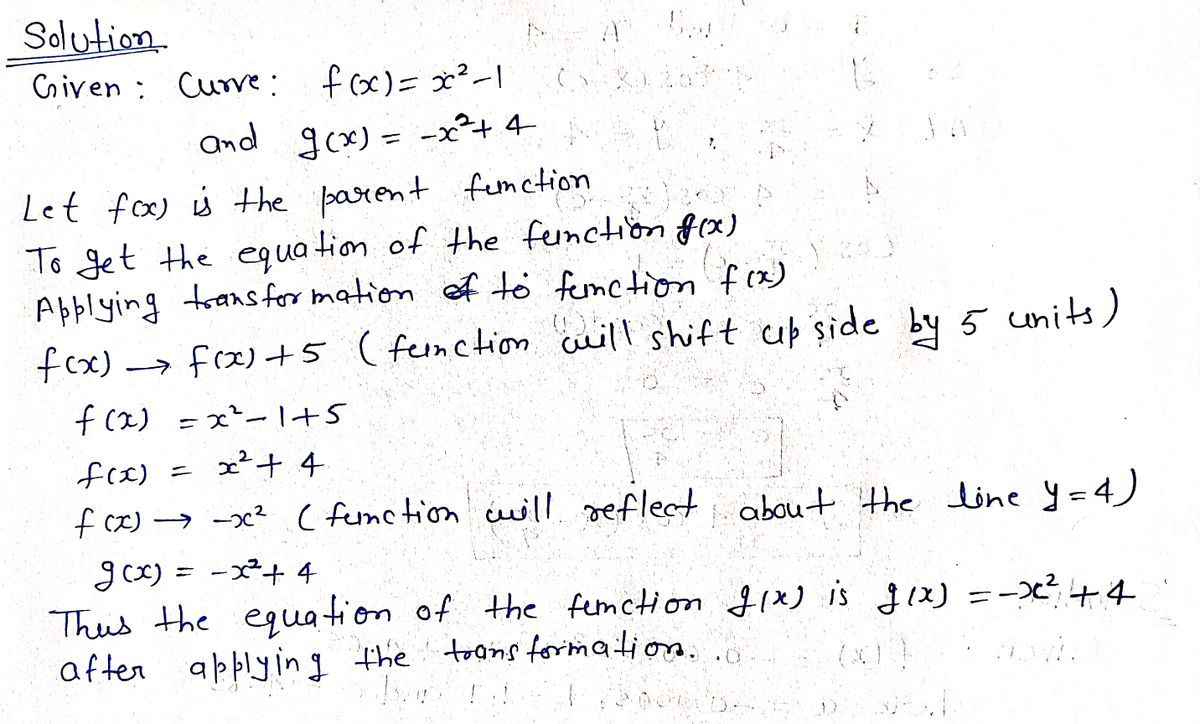 Solution
Given : Curve : f(x) = x²-1
and g(x) = -x²+ 4
Let f(x) is the parent function
To get the equation of the function g(x)
Applying transformation to function f(x)
f(x) → f(x)+5 (function will shift up side by 5 units)
f(x) = x²-1+5
f(x) = x²+ 4
f(x) → -x² (function will reflect about the line y=4)
g(x) = -x²+ 4
Thus the equation of the function g(x) is g(x) = -x²+4
after applying the transformation.